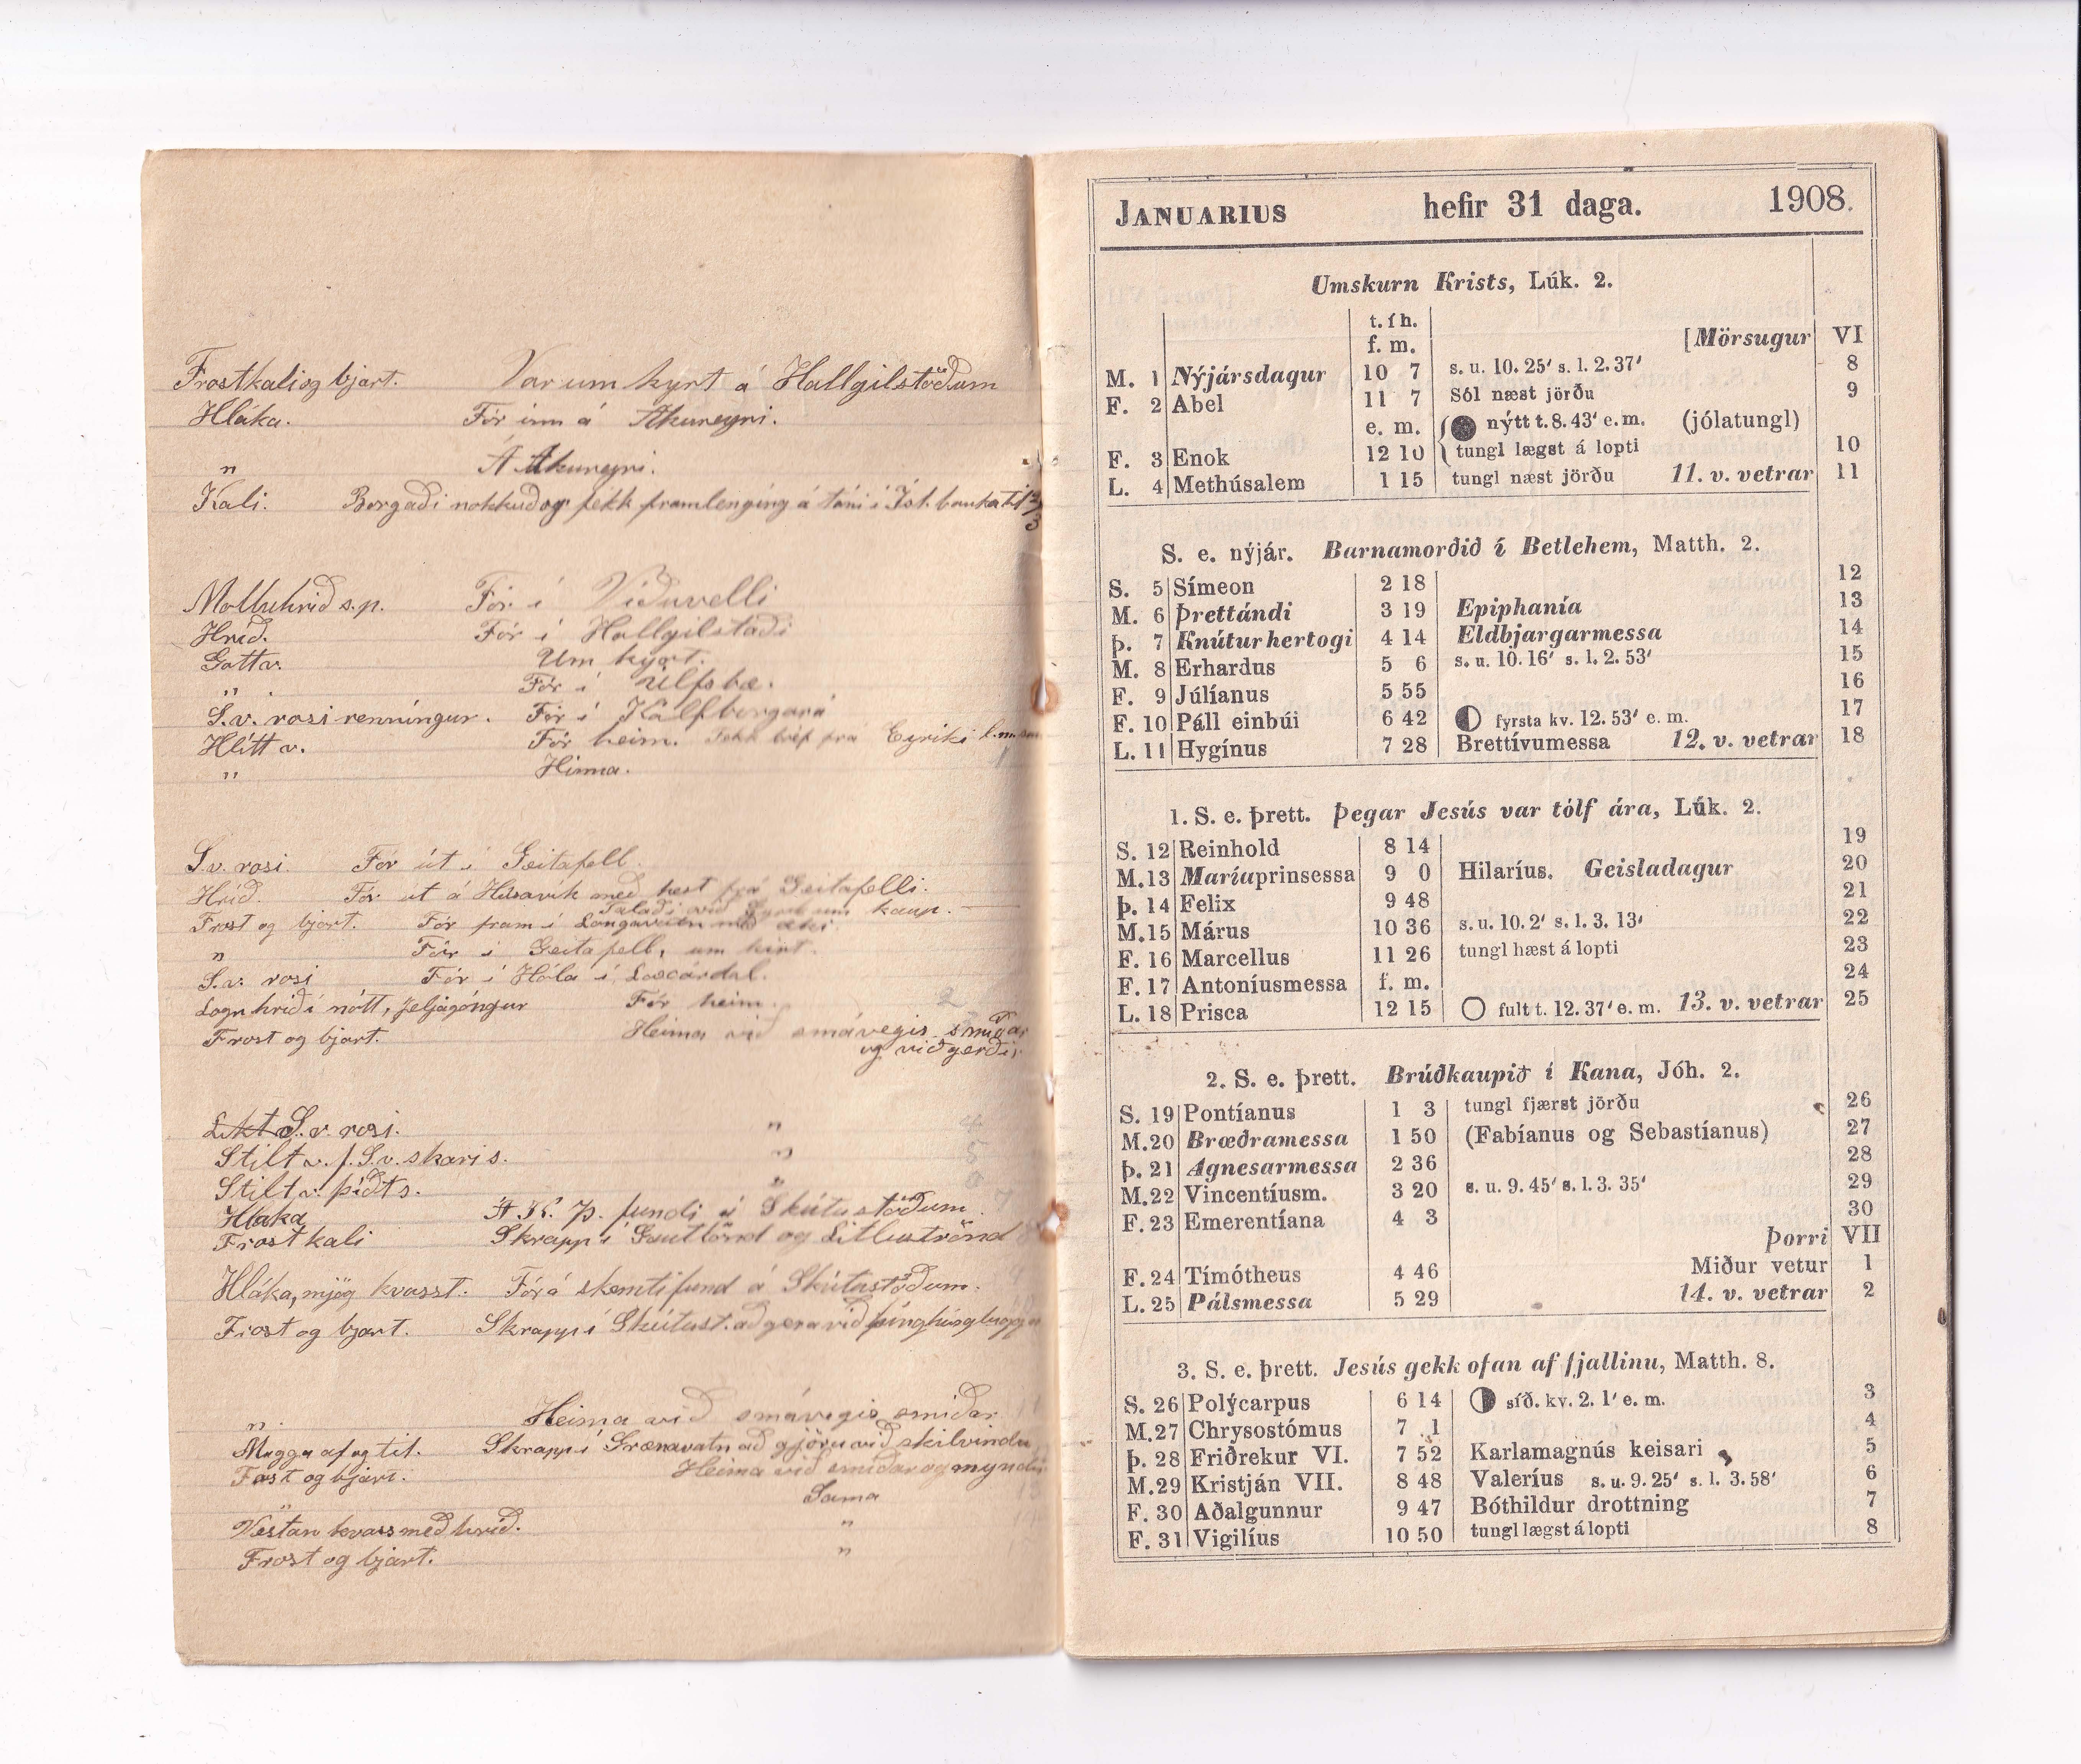 Frostkali og bjart. Var um kyrt á Hallgilstöðum
Hláka. Fór inn á Akureyri.
" Á Akureyri.
Kali. Borgaði nokkuð og fekk framlenging á láni í Ísl. banka til 12/3
Molluhríð s.p. Fór í Víðuvelli
Hríð. Fór í Hallgilstaði
Gott v. Um kyrt.
" Fór í Úlfsbæ.
S.v. rosi renníngur. Fór í Kálfborgará
Hlítt v. Fór heim. Fekk bréf frá Eyriki
" Hima.
S.v. rosi. Fór út í Geitafell.
Hríð. Fór út á Húsavík með hest frá Geitafelli.
Talaði við um kaup.
Frost og bjart. Fór fram í Langavatn með
" Fór í Geitafell, um kirt.
S.v. rosi Fór í Hóla í Laxárdal.
Logn hríð í nótt, jeljagöngur Fór heim. 2
Frost og bjart. Heima við smávegis smíðar
og viðgerðir
S.v. rosi. " 4
Stilt v. f. S.v. skaris. " 5
Stilt v. þíðts. " 6
Hláka Á K. Þ. fundi á Skútustöðum. 7
Frostkali Skrapp í Gautlönd og Litluströnd 8
Hláka, mjög kvasst. Fór á skemtifund á Skútustöðum.
Frost og bjart. Skrapp í Skútust. að gera við þínghúsglugga
" Heima við smávegis smíðar 11
Mugga af og til. Skrapp í Grænavatn að gjöra við skilvindu
Frost og bjart. Heima við smíðar og myndir
Sama 13
Vestan kvass með hríð. "
Frost og bjart. "
JANUARIUS hefir 31 daga. 1908.
Umskurn Krists, Lúk. 2.
t. í h.
f. m. [Mörsugur VI
M. 1 Nýjársdagur 10 7 s. u. 10. 25′ s. l. 2. 37′ 8
F. 2 Abel 11 7 Sól næst jörðu 9
e. m. nýtt t. 8. 43′ e. m. (jólatungl)
F. 3 Enok 12 10 tungl lægst á lopti 10
L. 4 Methúsalem 1 15 tungl næst jörðu 11. v. vetrar 11
S. e. nýjár. Barnamorðið í Betlehem, Matth. 2.
S. 5 Símeon 2 18 12
M. 6 Þrettándi 3 19 Epiphanía 13
Þ. 7 Knútur hertogi 4 14 Eldbjargarmessa 14
M. 8 Erhardus 5 6 s. u. 10. 16′ s. l. 2. 53′ 15
F. 9 Júlíanus 5 55 16
F. 10 Páll einbúi 6 42 fyrsta kv. 12. 53′ e. m. 17
L. 11 Hygínus 7 28 Brettívumessa 12. v. vetrar 18
1. S. e. þrett. Þegar Jesús var tólf ára, Lúk. 2.
S. 12 Reinhold 8 14 19
M. 13 Maríaprinsessa 9 0 Hilaríus. Geisladagur 20
Þ. 14 Felix 9 48 21
M. 15 Márus 10 36 s. u. 10. 2′ s. l. 3. 13′ 22
F. 16 Marcellus 11 26 tungl hæst á lopti 23
F. 17 Antoníusmessa f. m. 24
L. 18 Prisca 12 15 fult t. 12. 37′ e. m. 13. v. vetrar 25
2. S. e. þrett. Brúðkaupið í Kana, Jóh. 2.
S. 19 Pontíanus 1 3 tungl fjærst jörðu 26
M. 20 Bræðramessa 1 50 (Fabíanus og Sebastíanus) 27
Þ. 21 Agnesarmessa 2 36 28
M. 22 Vincentíusm. 3 20 s. u. 9. 45′ s. l. 3. 35′ 29
F. 23 Emerentíana 4 3 30
Þorri VII
F. 24 Tímótheus 4 46 Miður vetur 1
L. 25 Pálsmessa 5 29 14. v. vetrar 2
3. S. e. þrett. Jesús gekk ofan af fjallinu, Matth. 8.
S. 26 Polýcarpus 6 14 síð. kv. 2. 1′ e. m. 3
M. 27 Chrysostómus 7 1 4
Þ. 28 Friðrekur VI. 7 52 Karlamagnús keisari 5
M. 29 Kristján VII. 8 48 Valeríus s. u. 9. 25′ s. l. 3. 58′ 6
F. 30 Aðalgunnur 9 47 Bóthildur drottning 7
F. 31 Vigilíus 10 50 tungl lægst á lopti 8